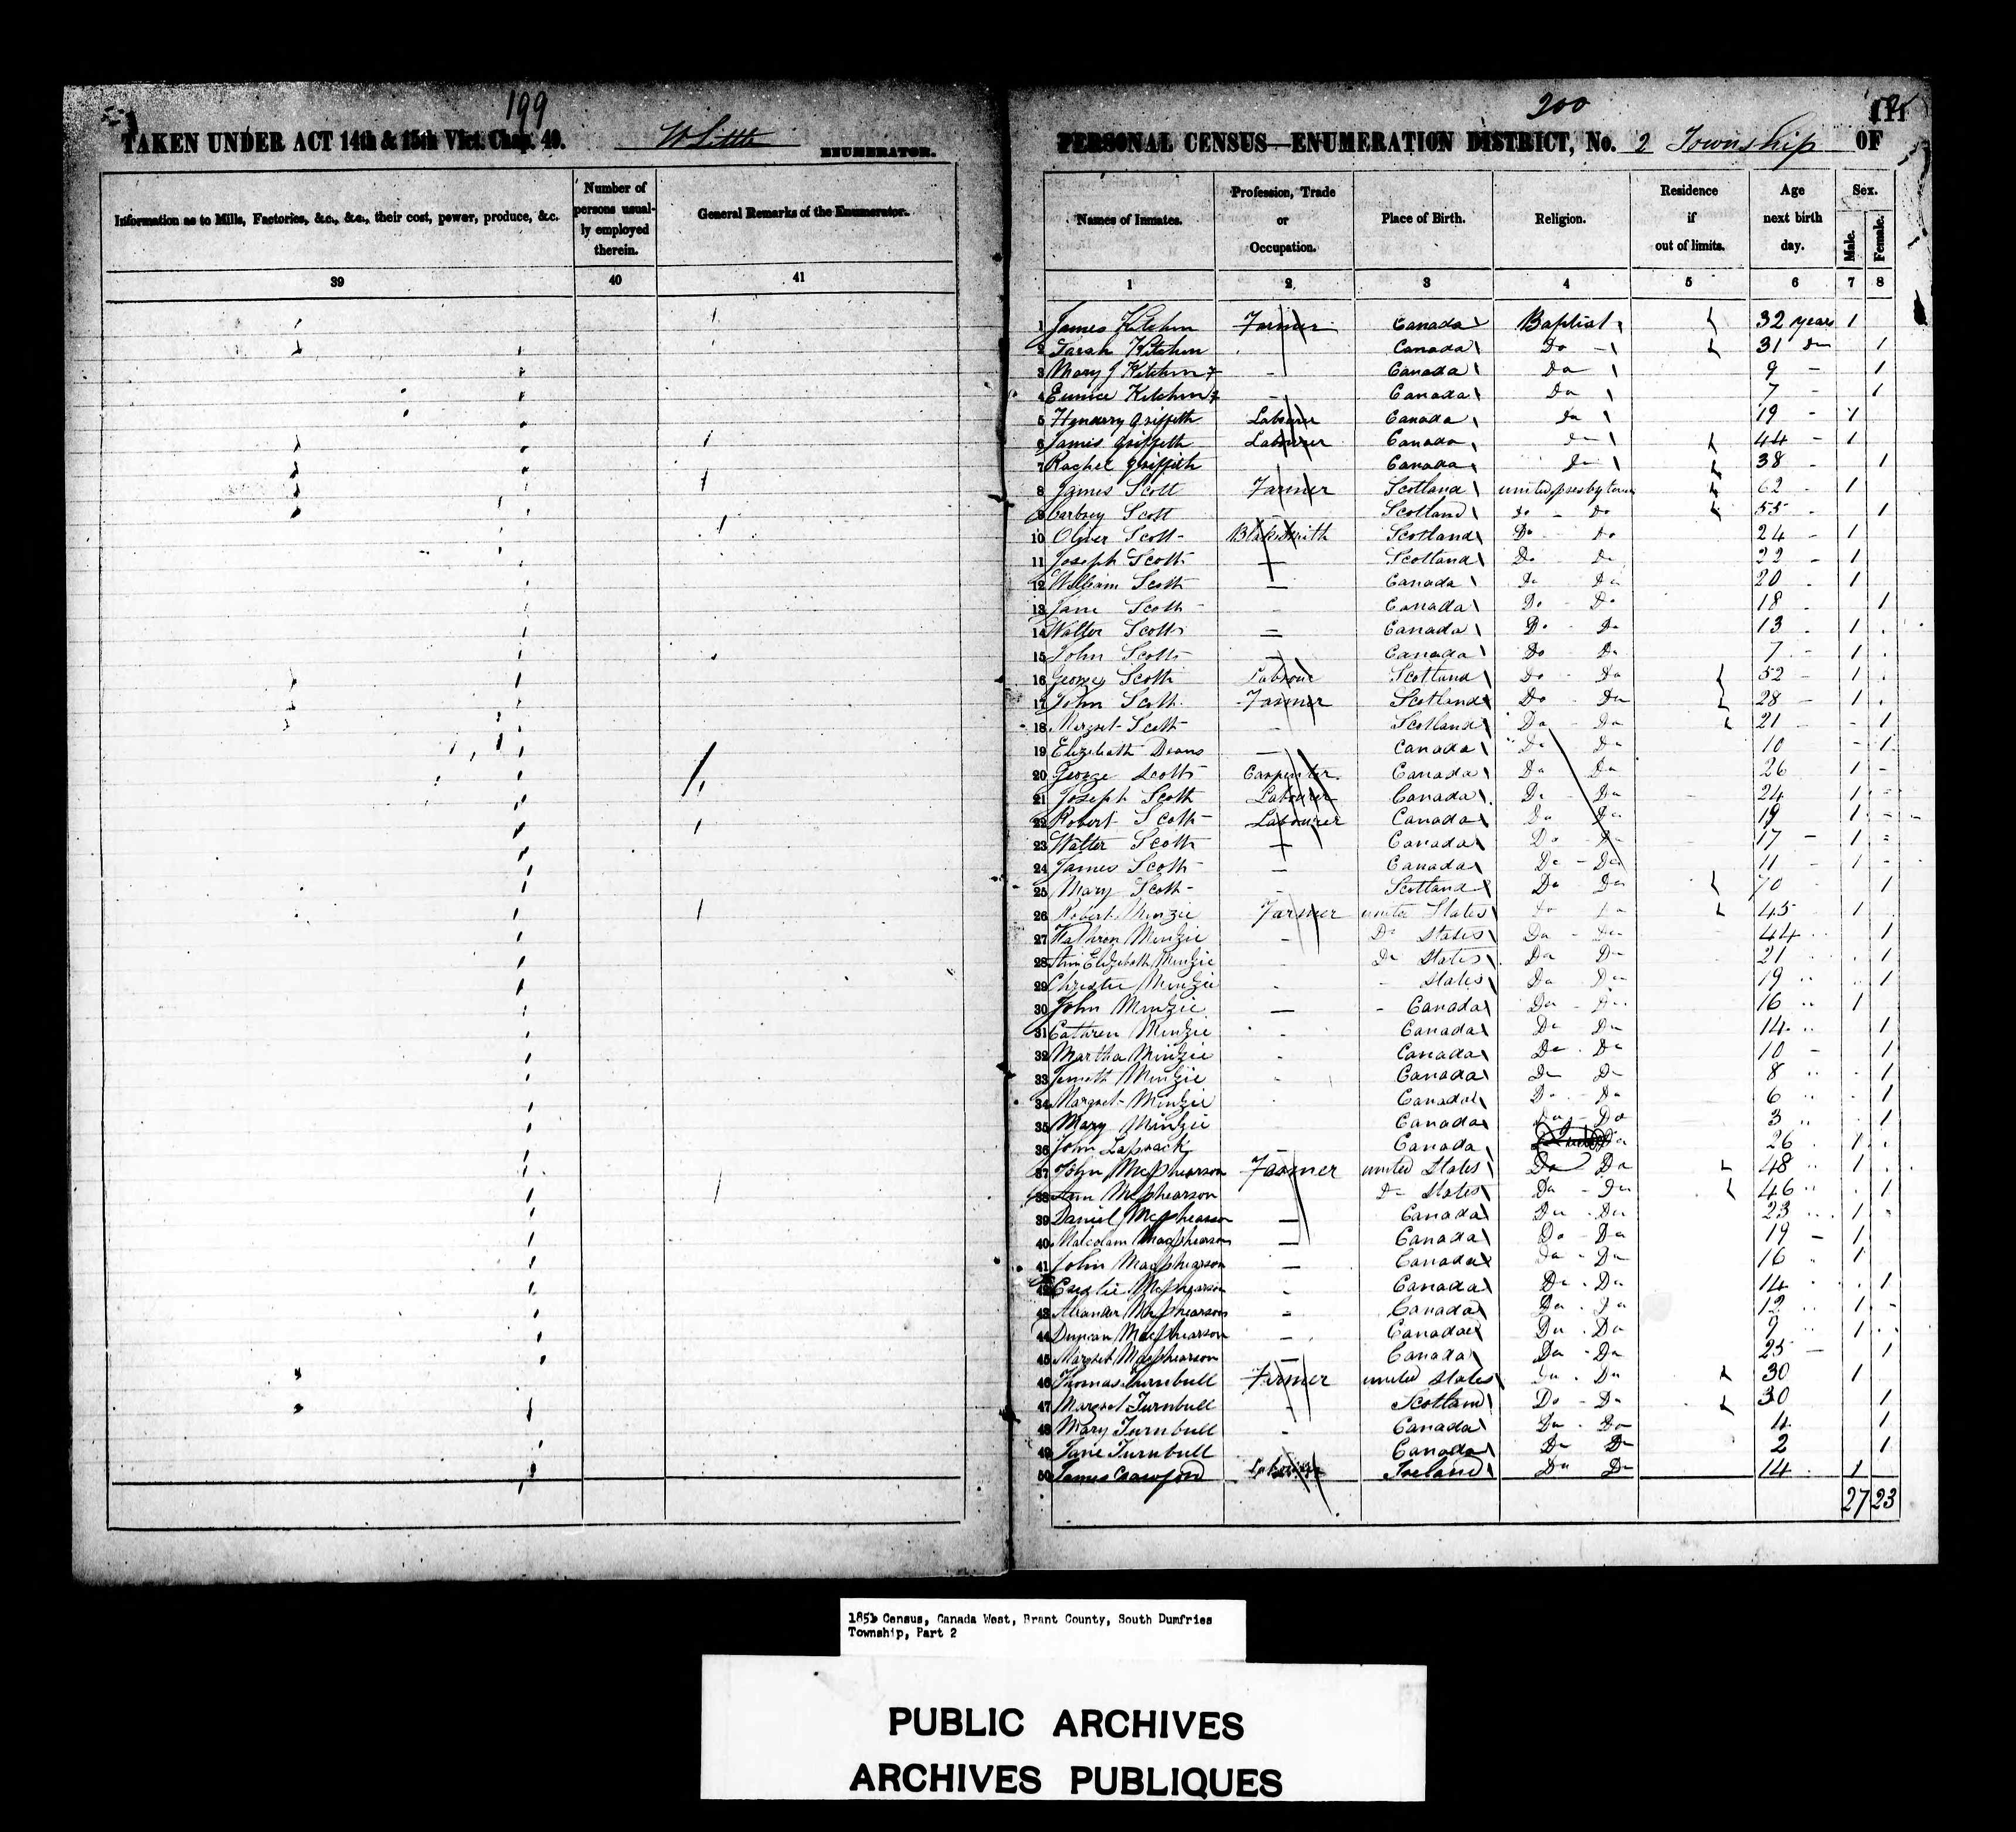 199
TAKEN UNDER ACT 14th & 15th Vict. Chap. 49.
ENUMERATOR.
Information as to Mills, Factories, &c., &c., their cost, power, produce, &c.
Number of persons usually employed therein.
General Remarks of the Enumerator.
39 40 41
200
PERSONAL CENSUS—ENUMERATION DISTRICT, No. 2 Township OF
Names of Inmates.
Profession, Trade or Occupation.
Place of Birth.
Religion.
Residence if out of limits.
Age next birth day.
Sex.
Male. Female.
1 2 3 4 5 6 7 8
1 James Kitchen Farmer Canada Baptist 32 years 1
2 Sarah Kitchen Canada Do 31 Do 1
3 Mary J Kitchen - Canada Do 9 - 1
4 Eunice Kitchen - Canada Do 7 - 1
5 Griffeth Canada Do 19 - 1
6 James Griffeth Labourer Canada Do 44 - 1
7 Rachel Griffith Canada Do 38 - 1
8 James Scott Farmer Scotland 62 - 1
9 Scott Scotland Do - Do 55 - 1
10 Oliver Scott Scotland Do Do 24 - 1
11 Joseph Scott Scotland Do Do 22 - 1
12 William Scott — Canada Do Do 20 - 1
13 Jane Scott - Canada Do - Do 18 - 1
14 Walter Scott Canada Do - Do 13 - 1
15 John Scott — Canada Do Do 7 - 1
16 George Scott Scotland Do - Do 52 - 1
17 John Scott Farmer Scotland Do - Do 28 - 1
18 Scott - Scotland Do - Do 21 - 1
19 Elizibath Deans — Canada Do Do 10 - 1
20 George Scott Carpenter Canada Do Do 26 1
21 Joseph Scott Labourer Canada Do - Do 24 1
22 Robert Scott Labourer Canada Do Do 19 1
23 Walter Scott Canada Do - Do 17 - 1
24 James Scott — Canada Do - Do 11 - 1
25 Mary Scott - Scotland Do Do 70 1
26 Robert Minzie Farmer united States Do Do 45 1
27 Minzie - Do States Do - Do 44 1
28 Elizabeth Minzie Do States Do Do 21 1
29 Minzie - States Do Do 19 1
30 John Minzie — Canada Do - Do 16 1
31 Cathren Minzie - Canada Do Do 14 1
32 Martha Minzie - Canada Do - Do 10 - 1
33 Minzie - Canada Do Do 8 1
34 Margret Minzie Canada Do - Do 6 1
35 Mary Minzie Canada Do - Do 3 1
36 John Canada Do 26 1
37 John Farmer united States Do Do 48 1
38 Mcphearson Do States Do - Do 46 1
39 Daniel — Canada Do - Do 23 1
40 — Canada Do - Do 19 - 1
41 John Macphearson — Canada Do - Do 16 1
42 Canada Do - Do 14 1
43 - Canada Do - Do 12 1
44 Duncan Macphearson - Canada Do - Do 9 1
45 Macphearson — Canada Do - Do 25 - 1
46 Thomas Turnbull Farmer united States Do - Do 30 1
47 Margret Turnbull - Scotland Do - Do 30 1
48 Mary Turnbull - Canada Do - Do 4 1
49 Jane Turnbull Canada Do Do 2 1
50 James Ireland Do Do 14 1
27 23
Census, Canada West, Brant County, South Dumfries
Township, Part 2
PUBLIC ARCHIVES
ARCHIVES PUBLIQUES